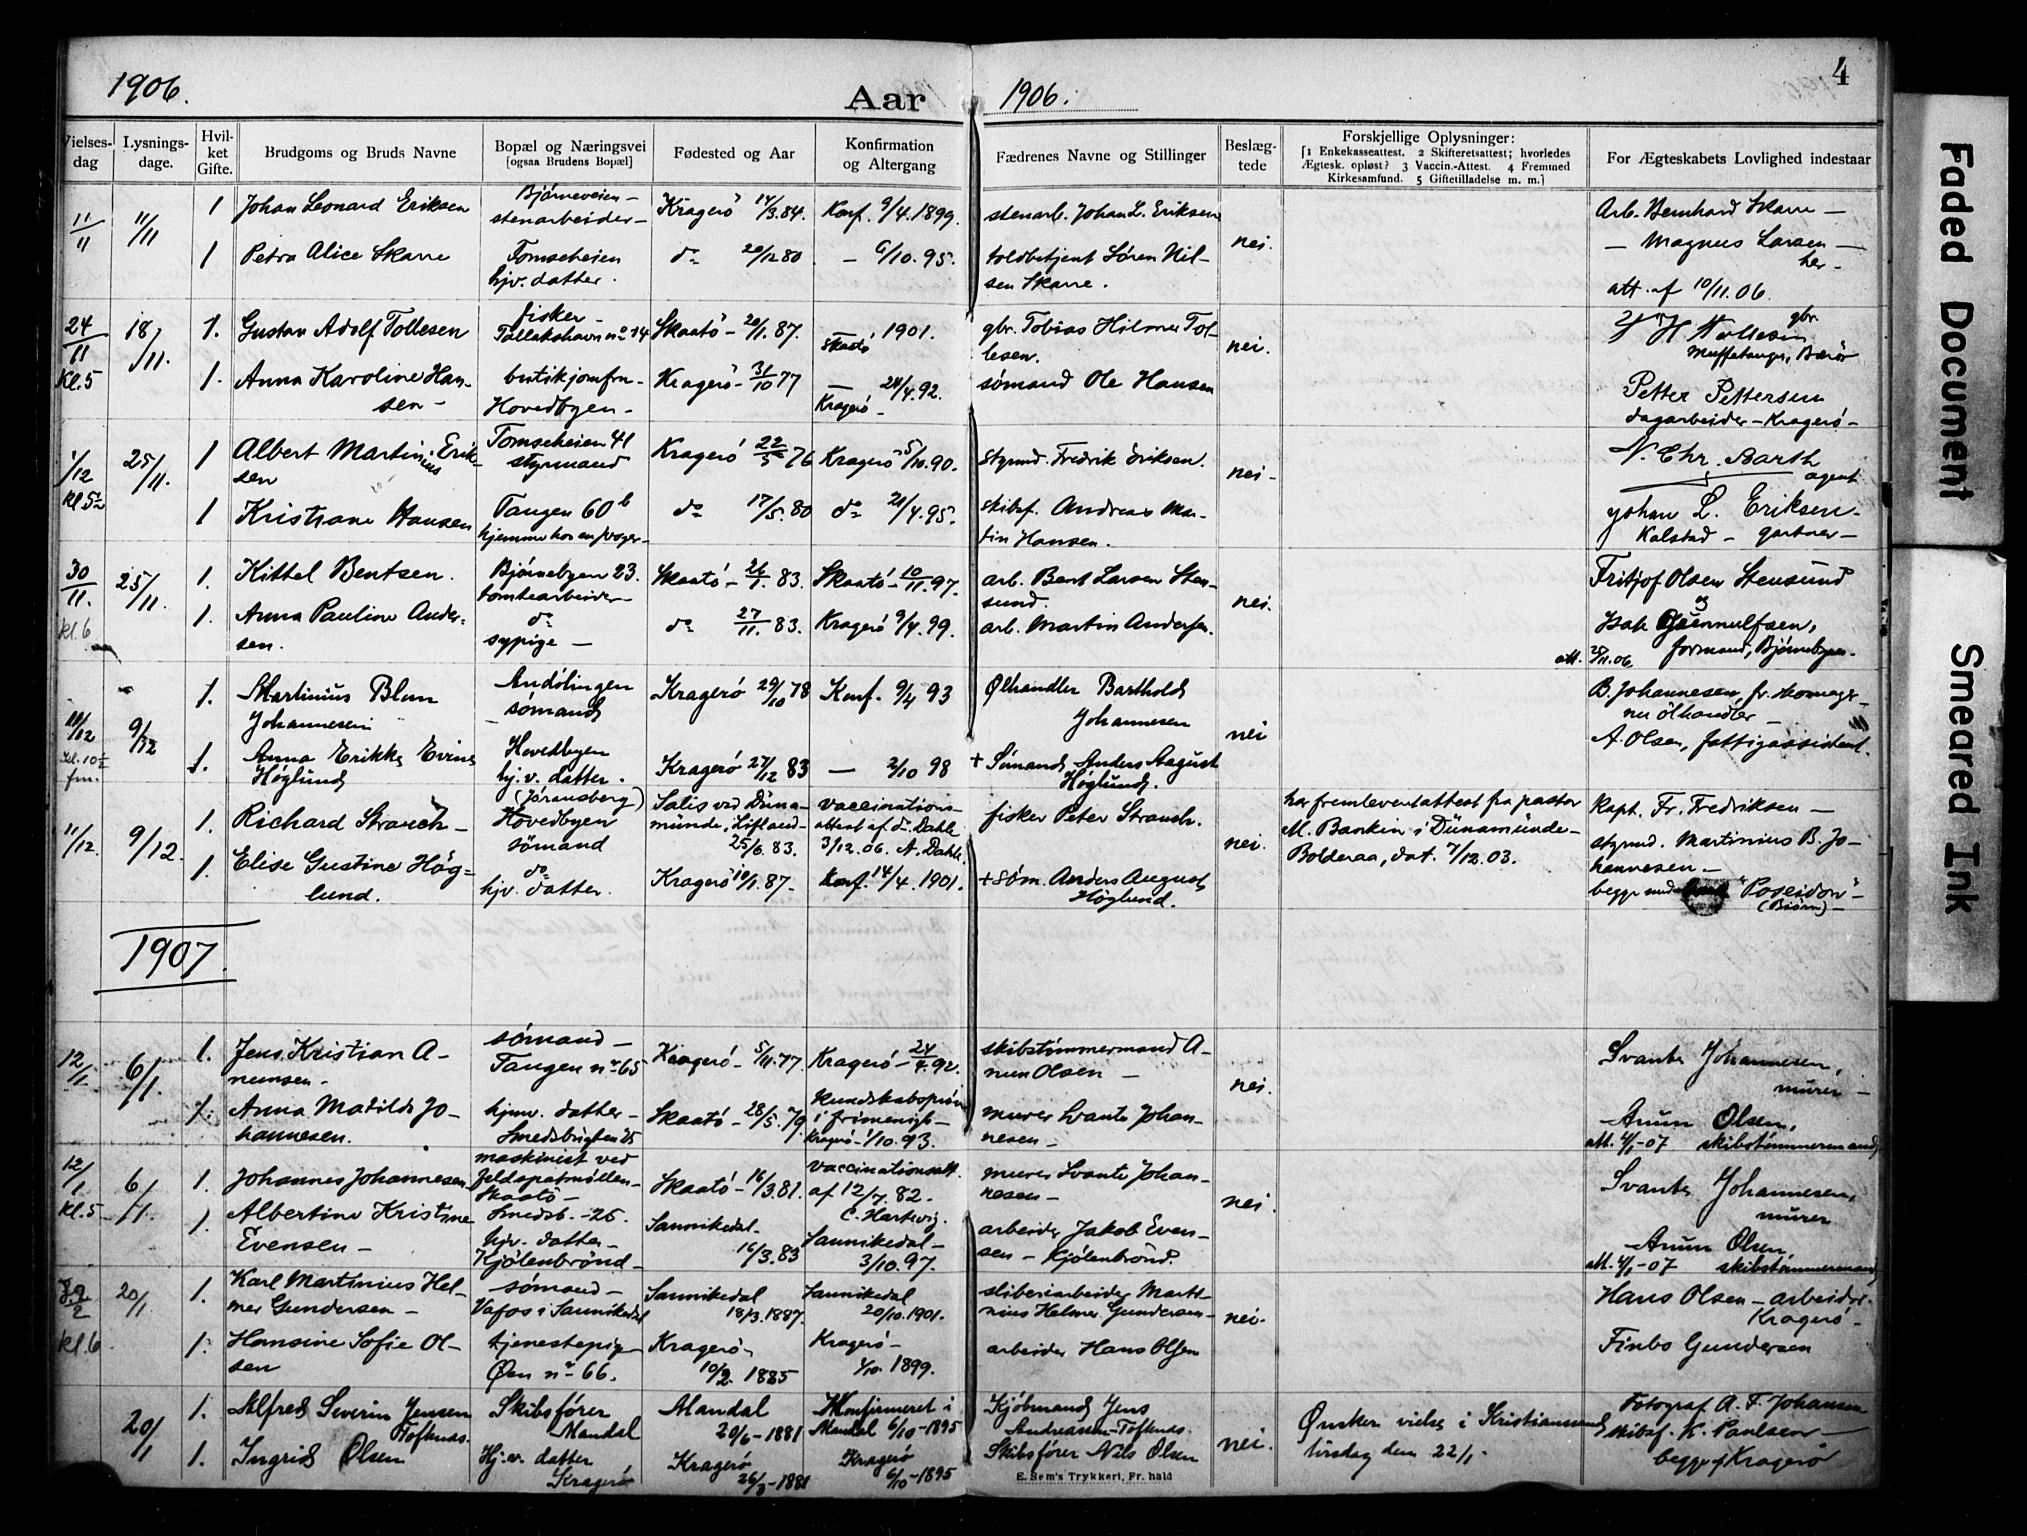 1906.
Aar
1906.
4
Vielses-
dag
Lysnings-
dage.
Hvil-
ket
Gifte.
Brudgoms og Bruds Navne
Bopæl og Næringsvei
[ogsaa Brudens Bopæl]
Fødested og Aar
Konfirmation
og Altergang
Fædrenes Navne og Stillinger
Beslæg-
tede
Forskjellige Oplysninger:
[1 Enkekasseattest. 2 Skifteretsattest; hvorledes
Ægtesk. opløst? 3 Vaccin.-Attest. 4 Fremmed
Kirkesamfund. 5 Giftetilladelse m. m.]
For Ægteskabets Lovlighed indestaar
11/11
11/11
1
Johan Leonard Eriksen
Bjørneveien –
stenarbeider –
Kragerö 14/3.84.
Konf. 9/4.1899.
stenarb. Johan L. Eriksen
nei.
Arb. Bernhard Skarre –
1
Petra Alice Skarre
Tomseheien
hjv. datter.
do 20/12 80
– 6/10.95.
toldbetjent Sören Nil-
sen Skarre.
– Magnus Larsen –
her –
att. af 10/11.06.
24/11
Kl.5
18/11.
1.
Gustav Adolf Tollesen
fisker –
Tallakshavn no 14
Skaatö – 20/1.87.
– 1901.
Skaatö
gbr. Tobias Hilmer Tol-
lesen.
nei.
gbr.
1.
Anna Karoline Han-
sen –
butikjomfru –
Hovedbyen –
Kragerö – 31/10 77
– 24/4.92.
Kragerö –
sømand Ole Hansen
Petter Pettersen
dagarbeider – Kragerö –
1/12
25/11.
1
Albert Martinius Erik-
sen
Tomseheien 41
styrmand
Kragerö 22/5 76
Kragerö 5/10.90.
styrmd. Fredrik Eriksen.
nei –
N. Chr. Barth
agent
1
Kristiane Hansen
Tangen 60 b
hjemme hos en svoger –
do 17/5.80
do 21/4.95.
skibsf. Andreas Mar-
tin Hansen.
Johan L. Eriksen –
Kalstad – gartner –
30/11.
kl. 6
25/11.
1.
Kittel Bentsen.
Bjørnebyen 23.
tomtearbeider –
Skaatö – 26/1.83.
Skaatö – 10/11.97.
arb. Bent Larsen Sten-
sund.
nei.
Fritjof Olsen Stensund
og
1.
Anna Pauline Ander-
sen.
do
sypige –
do 27/11.83.
Kragerö 9/4.99.
arb. Martin Andersen.
Isak Gunnulfsen,
formand, Bjørnebyen –
att. 25/11.06
11/12
kl. 10½
fm.
9/12
1.
Martinius Blom
Johannesen
Andölingen
sømand
Kragerö 29/10 78
Konf. 9/4 93
Ölhandler Barthold
Johannesen
nei
B. Johannesen,
ölhandler –
1.
Anna Erikke Evine
Höglund
Hovedbyen
hj.v. datter.
(Jöransberg)
Kragerö 27/12 83
– 2/10 98
+ Sömand Anders August
Höglund.
A. Olsen, fattigassistent.
11/12.
9/12.
1.
Richard Strauch –
Hovedbyen
sömand
Salis ved Düna-
münde, Lifland –
25/6.83.
vaccinations-
attest af dr. Dahle
3/12.06. A. Dahle.
fisker Peter Strauch.
nei.
har fremlevert attest fra pastor
M. Bankin i Dünamünde –
Bolderaa, dat. 7/12.03.
Kapt. Fr. Fredriksen –
styrmd. Martinius B. Jo-
hannesen –
1.
Elise Gustine Hög-
lund.
do
hjv. datter.
Kragerö 10/1.87.
Konf. 14/4.1901.
+ söm. August Anders
Höglund.
begge med "Poseidon" –
(Biörn) –
1907.
12/1
6/1.
1.
Jens Kristian A-
nunsen –
sømand –
Tangen no 65
Kragerö – 5/11.77.
Kragerö – 24/4.92.
skibstömmermand A-
nun Olsen –
nei.
Svante Johannesen,
murer –
1.
Anna Matilde Jo-
hannesen.
hjmv. datter –
Smedsbugten 25
Skaatö – 28/5.79.
Kundskabspröve
i frimenigh –
Kragerö – 1/10.93.
murer Svante Johan-
nesen –
Anun Olsen,
att. 4/1-07 skibstömmermand,
12/1
Kl.5
6/1.
1.
Johannes Johannesen
maskinist ved
Feldspatmöllen –
Skaatö –
Smedsb. – 25.
Skaatö – 16/3.81.
vaccinationsatt.
af 12/7.82.
C. Hartvig.
murer Svante Johan-
nesen –
nei.
Svante Johannesen,
murer
1.
Albertine Kristine
Evensen –
hjv. datter –
Kjölenbrönd –
Sannikedal –
16/3.83
Sannikedal –
3/10.97.
arbeider Jakob Even-
sen – Kjölenbrönd.
Anun Olsen,
att. 4/1-07 skibstömmermand,
kl.6
20/1
1.
Karl Martinius Hel-
mer Gundersen –
sømand –
Vafos i Sannikedal
Sannikedal
18/3.1887.
Sannikedal
20/10.1901.
sliberiarbeider Marti-
nius Helmer Gundersen –
nei.
Hans Olsen – arbeider.
Kragerö –
1.
Hansine Sofie Ol-
sen
tjenestepige
Øen no 66.
Kragerö –
10/2.1885
Kragerö –
1/10.1899.
arbeider Hans Olsen
Finbo Gundersen
20/1
1.
Alfred Severin Jensen
Tofknas.
Skibsfører
Mandal
Mandal
20/6-1881
Konfirmeret i
Mandal 6/10-1895
Kjöbmand Jens
Andreassen-Tofknas.
nei.
Ønsker vielse i Kristianssand
tirsdag den 22/1.
Fotograf A. F. Johansen
skibsf. K. Paulsen –
begge af Kragerö
1.
Ingrid Olsen
Hj.v. datter
Kragerö
Kragerö
26/3-1881
Kragerö
6/10-1895
Skibsfører Nils Olsen
E. Sem's Trykkeri, Fr.hald
Faded Document
Smeared Ink